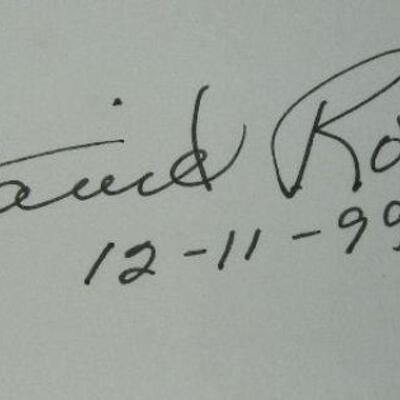 avid Ro
12-11-99